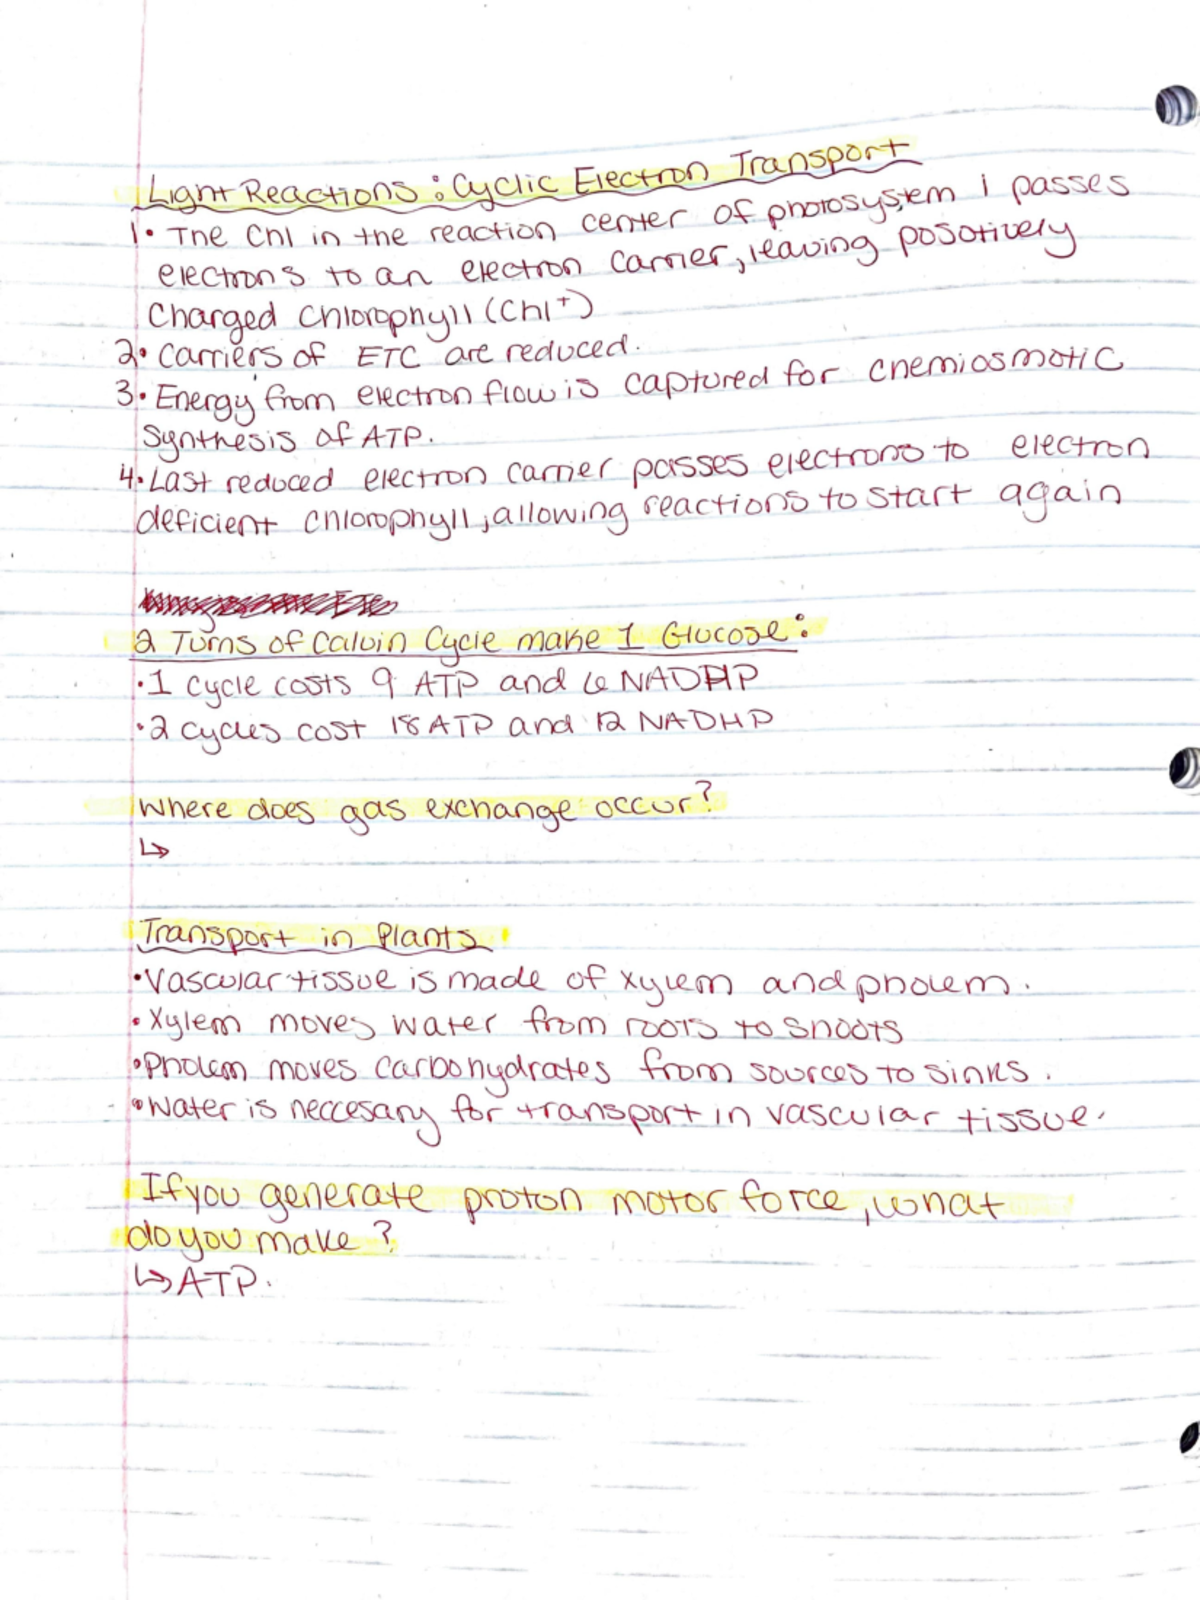 Light Reactions: Cyclic Electron Transport
1. The Chl in the reaction center of photosystem 1 passes
electrons to an electron carrier, leaving posotively
Charged Chlorophyll (Chl⁺)
2. Carriers of ETC are reduced.
3. Energy from electron flow is captured for chemiosmotic
Synthesis of ATP.
4. Last reduced electron carrier passes electrons to electron
deficient chlorophyll, allowing reactions to start again
2 Turns of Calvin Cycle make 1 Glucose:
• 1 cycle costs 9 ATP and 6 NADPHP
• 2 cycles cost 18 ATP and 12 NADHP
Where does gas exchange occur?
↳
Transport in Plants
• Vascular tissue is made of xylem and pholem.
• Xylem moves water from roots to shoots
• Pholem moves carbohydrates from sources to sinks.
• Water is neccesary for transport in vascular tissue.
If you generate proton motor force, what
do you make?
↳ ATP.